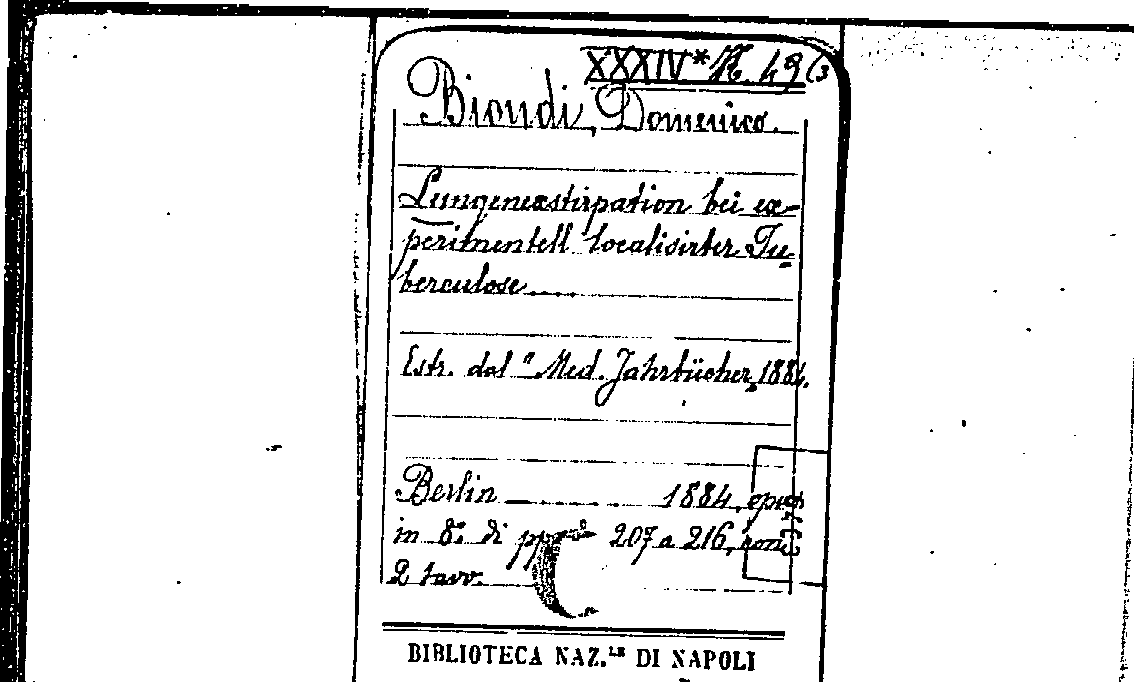 XXXIV* M. 49 (3
Biondi, Domenico.
Lungenexstirpation bei ex-
perimentell localisirter Tu-
berculose....
Estr. dal "Med. Jahrbücher, 1884.
Berlin 1884, opusc
in 8.° di pp. da 207 a 216, con
2 tavv.
BIBLIOTECA NAZ.LE DI NAPOLI